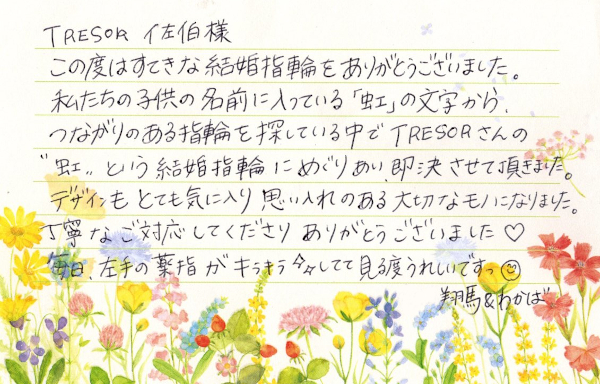 TRESOR 佐伯様
この度はすてきな結婚指輪をありがとうございました。
私たちの子供の名前に入っている「虹」の文字から、
つながりのある指輪を探している中でTRESORさんの
"虹"という結婚指輪にめぐりあい、即決させて頂きました。
デザインもとても気に入り思い入れのある大切なモノになりました。
丁寧なご対応してくださりありがとうございました♡
毎日、左手の薬指がキラキラ々々してて見る度うれしいですっ☺
翔馬&わかば